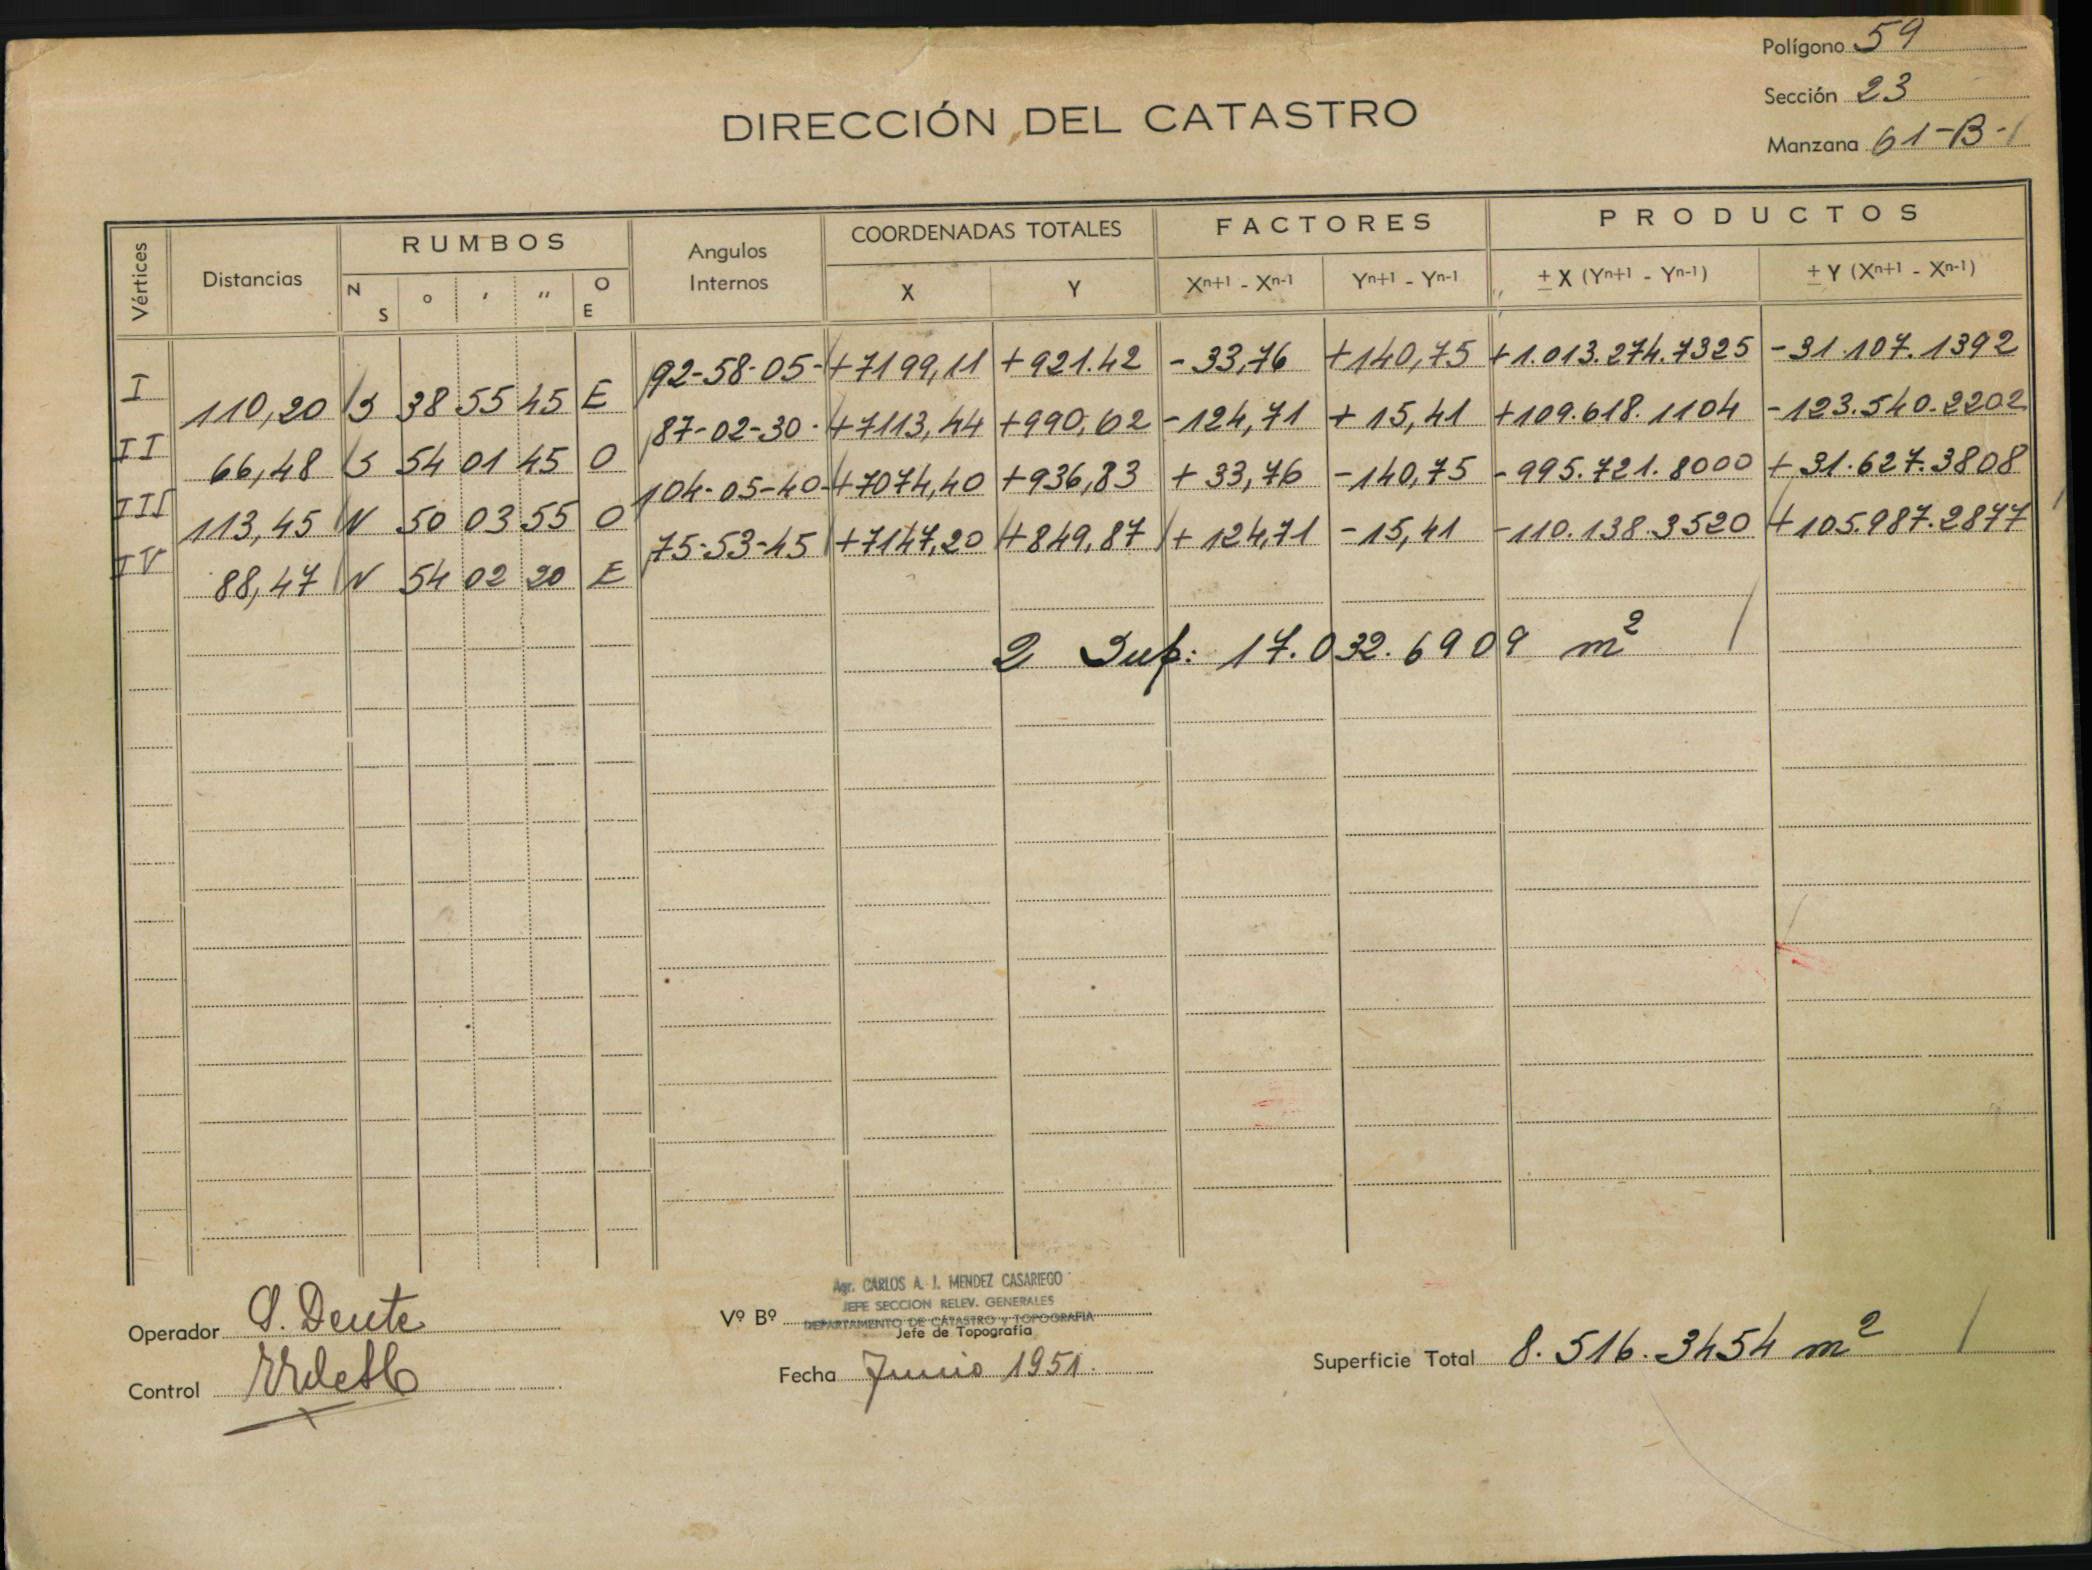 Polígono 59
Sección 23
Manzana 61-B-
DIRECCIÓN DEL CATASTRO
Vértices Distancias RUMBOS Angulos Internos COORDENADAS TOTALES FACTORES PRODUCTOS
N S o ' '' O E X Y Xn+1 - Xn-1 Yn+1 - Yn-1 ± X (Yn+1 - Yn-1) ± Y (Xn+1 - Xn-1)
I 92-58-05- +7199,11 +921.42 -33,76 +140,75 +1.013.274.7325 -31.107.1392
110,20 S 38 55 45 E
II 87-02-30- +7113,44 +990,62 -124,71 +15,41 +109.618.1104 -123.540.2202
66,48 S 54 01 45 O
III 104-05-40- +7074,40 +936,83 +33,76 -140,75 -995.721.8000 +31.627.3808
113,45 N 50 03 55 O
IV 75-53-45 +7147,20 +849,87 +124,71 -15,41 -110.138.3520 +105.987.2877
88,47 N 54 02 20 E
2 Sup: 17.032.6909 m²
Operador S. Dente
Control
Vº Bº Agr. CARLOS A. J. MENDEZ CASARIEGO
JEFE SECCION RELEV. GENERALES
DEPARTAMENTO DE CATASTRO y TOPOGRAFIA
Jefe de Topografía
Fecha Junio 1951.
Superficie Total 8.516.3454 m²